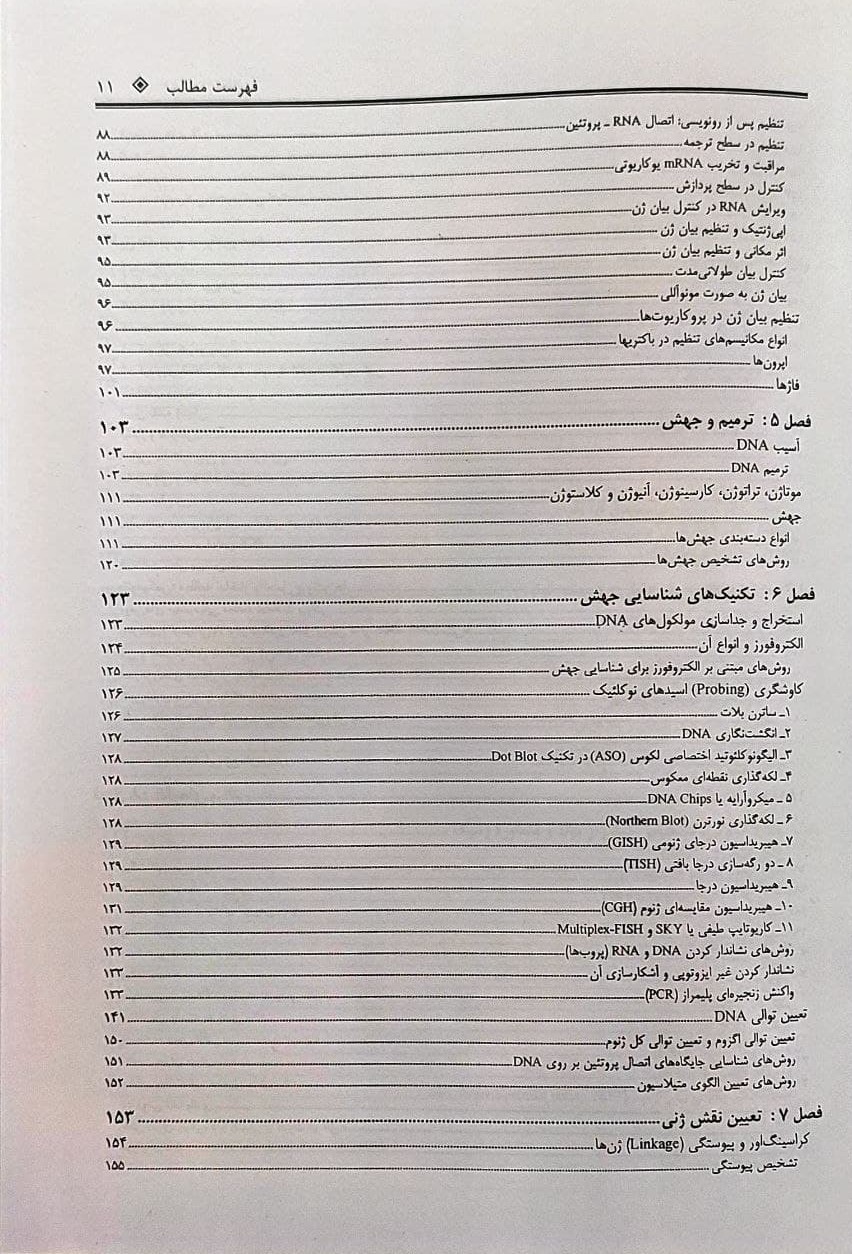 فهرست مطالب ۱۱
تنظیم پس از رونویسی: اتصال RNA ـ پروتئین ۸۸
تنظیم در سطح ترجمه ۸۸
مراقبت و تخریب mRNA یوکاریوتی ۸۹
کنترل در سطح پردازش ۹۲
ویرایش RNA در کنترل بیان ژن ۹۳
اپی‌ژنتیک و تنظیم بیان ژن ۹۳
اثر مکانی و تنظیم بیان ژن ۹۵
کنترل بیان طولانی‌مدت ۹۵
بیان ژن به صورت مونوآللی ۹۶
تنظیم بیان ژن در پروکاریوت‌ها ۹۶
انواع مکانیسم‌های تنظیم در باکتریها ۹۷
اپرون‌ها ۹۷
فاژها ۱۰۱
فصل ۵: ترمیم و جهش ۱۰۳
آسیب DNA ۱۰۳
ترمیم DNA ۱۰۳
موتاژن، تراتوژن، کارسینوژن، آنیوژن و کلاستوژن ۱۱۱
جهش ۱۱۱
انواع دسته‌بندی جهش‌ها ۱۱۱
روش‌های تشخیص جهش‌ها ۱۲۰
فصل ۶: تکنیک‌های شناسایی جهش ۱۲۳
استخراج و جداسازی مولکول‌های DNA ۱۲۳
الکتروفورز و انواع آن ۱۲۴
روش‌های مبتنی بر الکتروفورز برای شناسایی جهش ۱۲۵
کاوشگری (Probing) اسیدهای نوکلئیک ۱۲۶
۱ـ ساترن بلات ۱۲۶
۲ـ انگشت‌نگاری DNA ۱۲۷
۳ـ الیگونوکلئوتید اختصاصی لکوس (ASO) در تکنیک Dot Blot ۱۲۸
۴ـ لکه‌گذاری نقطه‌ای معکوس ۱۲۸
۵ ـ میکروآرایه یا DNA Chips ۱۲۸
۶ ـ لکه‌گذاری نورترن (Northern Blot) ۱۲۸
۷ـ هیبریداسیون درجای ژنومی (GISH) ۱۲۹
۸ ـ دو رگه‌سازی درجا بافتی (TISH) ۱۲۹
۹ـ هیبریداسیون درجا ۱۲۹
۱۰ـ هیبریداسیون مقایسه‌ای ژنوم (CGH) ۱۳۱
۱۱ـ کاریوتایپ طیفی یا SKY و Multiplex-FISH ۱۳۲
روش‌های نشاندار کردن DNA و RNA (پروب‌ها) ۱۳۲
نشاندار کردن غیر ایزوتوپی و آشکارسازی آن ۱۳۲
واکنش زنجیره‌ای پلیمراز (PCR) ۱۳۳
تعیین توالی DNA ۱۴۱
تعیین توالی اگزوم و تعیین توالی کل ژنوم ۱۵۰
روش‌های شناسایی جایگاه‌های اتصال پروتئین بر روی DNA ۱۵۱
روش‌های تعیین الگوی متیلاسیون ۱۵۲
فصل ۷: تعیین نقش ژنی ۱۵۳
کراسینگ‌اور و پیوستگی (Linkage) ژن‌ها ۱۵۴
تشخیص پیوستگی ۱۵۵